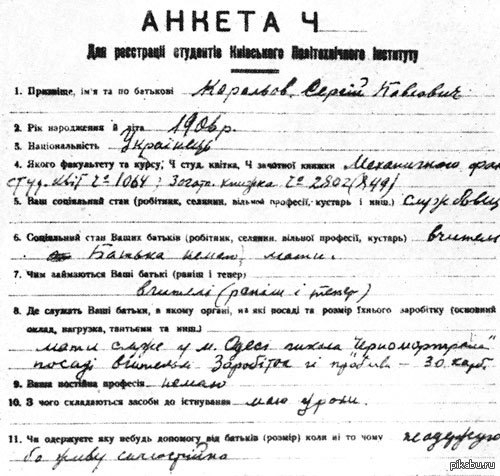 АНКЕТА Ч
Для реєстрації студентів Київського Політехнічного Інституту
1. Призвіще, ім'я та по батькові Корольов Сергій Павлович
2. Рік народження в літа 1906 р.
3. Національність Українець
4. Якого факультету та курсу, Ч студ. квітка, Ч зачотної книжки Механичного фак
студ. квіт Ч° 1064; Зогота. книжка Ч° 2802 (849)
5. Ваш соціяльний стан (робітник, селянин, вільної професії, кустарь і инш.) службовиц
6. Соціяльний стан Ваших батьків (робітник, селянин. вільної професії, кустарь) вчитель
Батька немає, мати.
7. Чим займаються Ваші батькі (раніш і тепер)
вчителі (раніш і тепер)
8. Де служать Ваші батьки, в якому органі, на які посаді та розмір їхнього заробітку (основний
оклад, нагрузка, тантьеми та инш.)
мати служе у м. Одесі школа Черномортрана
посаді вчительки Заробітка її - 30 карб.
9. Ваша постійна професія немаю
10. З чого складаються засоби до існтування маю уроки.
11. Чи одержуєте яку небудь допомогу від батьків (розмір) коля ні то чому неодержую
бо живу самостійно
pikabu.ru